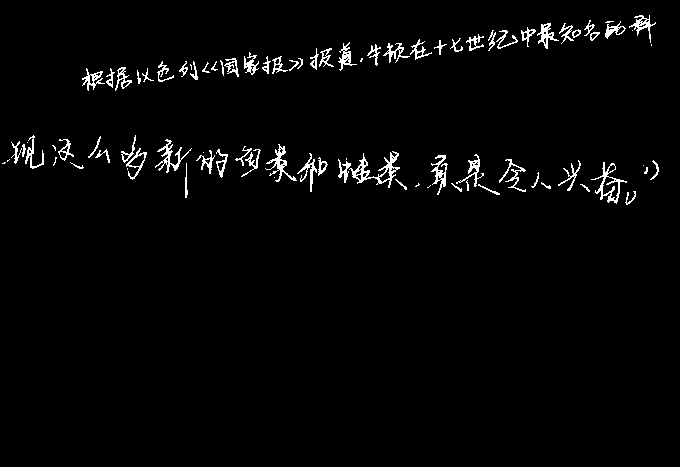 根据以色列《国家报》报道,牛顿在十七世纪中最知名的科
现这么多新的鱼类和蛙类,真是令人兴奋。”